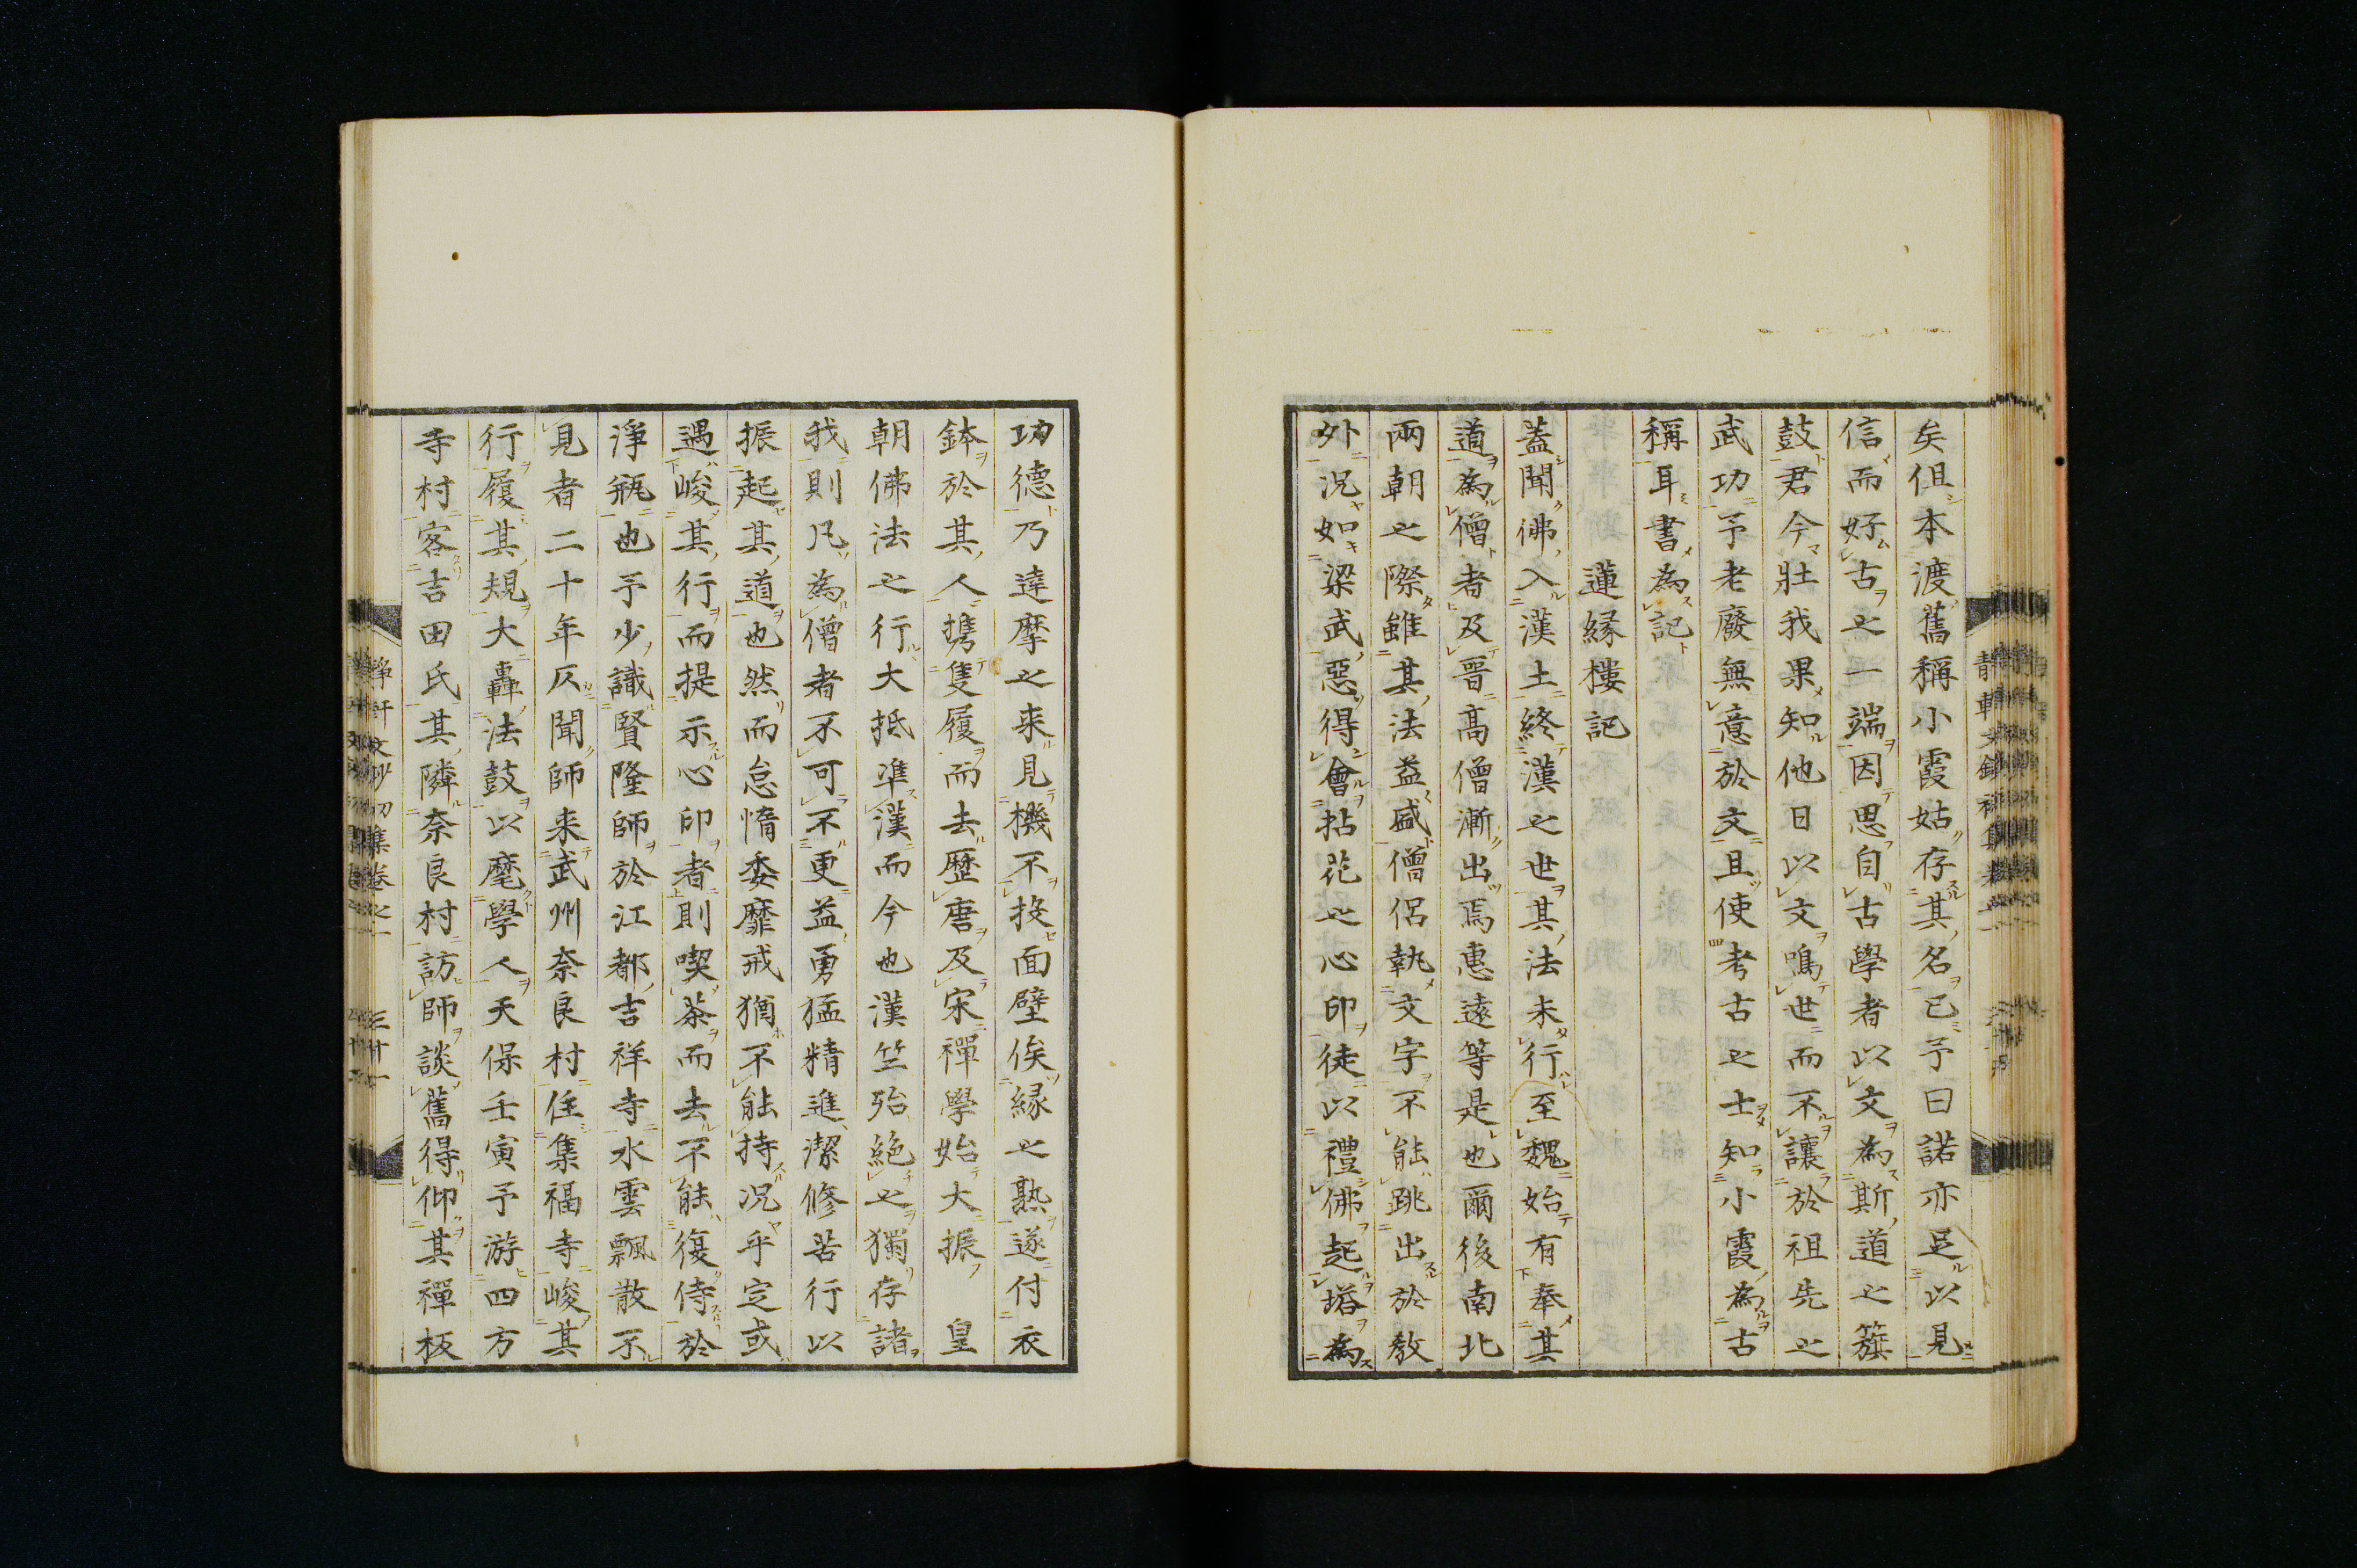 矣但本渡舊稱小霞姑存其名已予曰諾亦足以見
信而好古之一端因思自古學者以文為斯道之簱
鼓君今壯我果知他日以文鳴世而不讓於祖先之
武功予老廢無意於文且使考古之士知小霞為古
稱耳書為記
蓮縁樓記
蓋聞佛入漢土終漢之世其法未行至魏始有奉其
道為僧者及晉高僧漸出焉惠遠等是也爾後南北
兩朝之際雖其法益盛僧侶執文字不能跳出於教
外況如梁武惡得會拈花之心印徒以禮佛起塔為
功德乃達摩之来見機不投面壁俟縁之熟遂付衣
鉢於其人携隻履而去歷唐及宋禪學始大振 皇
朝佛法之行大抵準漢而今也漢竺殆絶之獨存諸
我則凡為僧者不可不更益勇猛精進潔修苦行以
振起其道也然而怠惰委靡戒猶不能持況乎定或
遇峻其行而提示心印者則喫茶而去不能復侍於
淨瓶也予少識賢隆師於江都吉祥寺水雲飄散不
見者二十年仄聞師来武州奈良村住集福寺峻其
行履其規大轟法鼓以麾學人天保壬寅予游四方
寺村客吉田氏其隣奈良村訪師談舊得仰其禪板